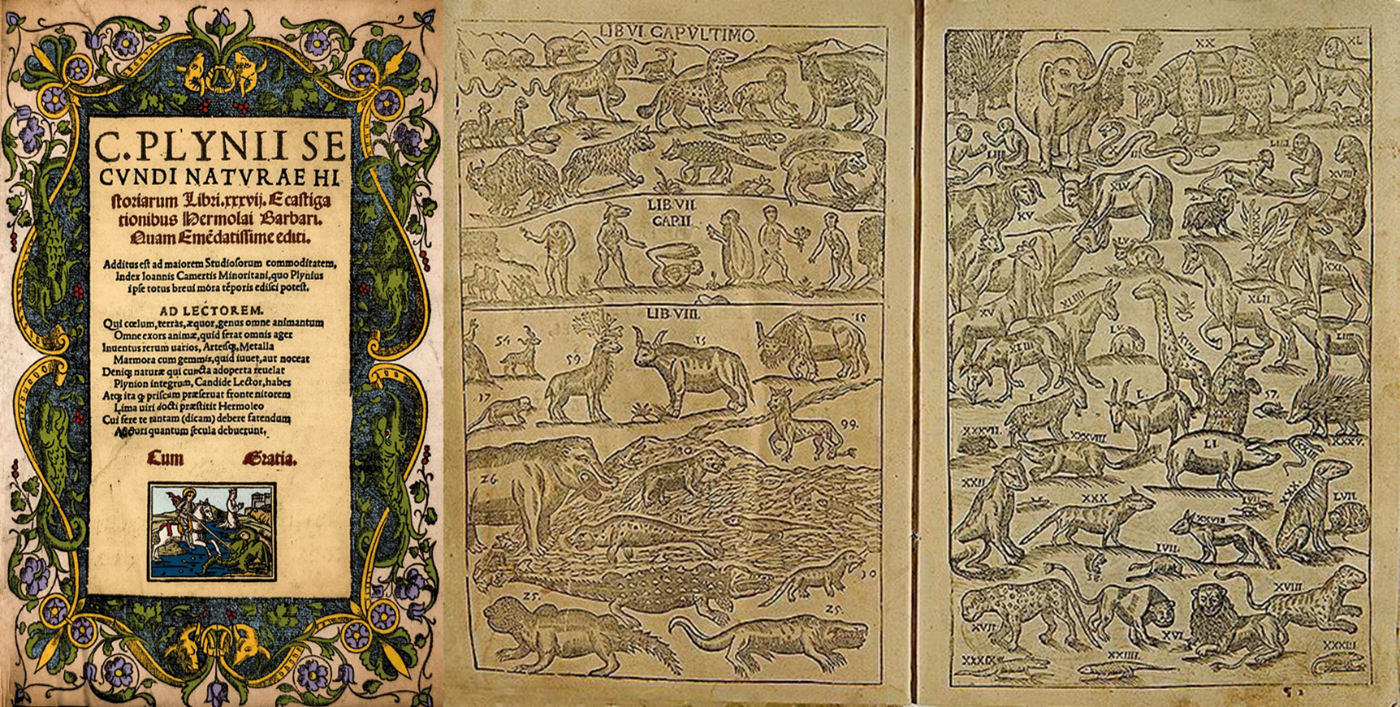 C. PLYNII SE
CVNDI NATVRAE HI
storiarum Libri.xxxvij. E castiga
tionibus Hermolai Barbari.
Quam Emēdatissime editi.
Additus est ad maiorem Studiosorum commoditatem,
Index Ioannis Camertis Minoritani, quo Plynius
ipse totus breui mora tēporis edisci potest.
AD LECTOREM.
Qui cœlum, terras, æquor, genus omne animantum
Omne exors animæ, quid ferat omnis ager
Inuentus rerum uarios, Artesq;, Metalla
Marmora cum gemmis, quid iuuet, aut noceat
Deniq; naturæ qui cuncta adoperta reuelat
Plynion integrum, Candide Lector, habes
Atq; ita q priscam præseruat fronte nitorem
Lima uiri docti præstitit Hermoleo
Cui fere te tantam (dicam) debere fatendum
quantum secula debuerunt.
Cum Gratia.
LIB VI CAP VLTIMO.
LIB VII.
CAP II.
LIB VIII.
54.
59.
15
15
17
99.
26
30
25.
25.
I.
XX
XL
LIIII
XVIII
XV
XLV
LV
XXI
XLIIII
XLII
XV
LV
XVIII
LIII
L
57
XXXVII.
XXXVIII
LI
XXXV.
XXII
XXX
XXX
LVII.
XXVIII
LVII.
XVIII
XVII
XVI
XXXIX
XXIIII.
XXXIII
¶ 2